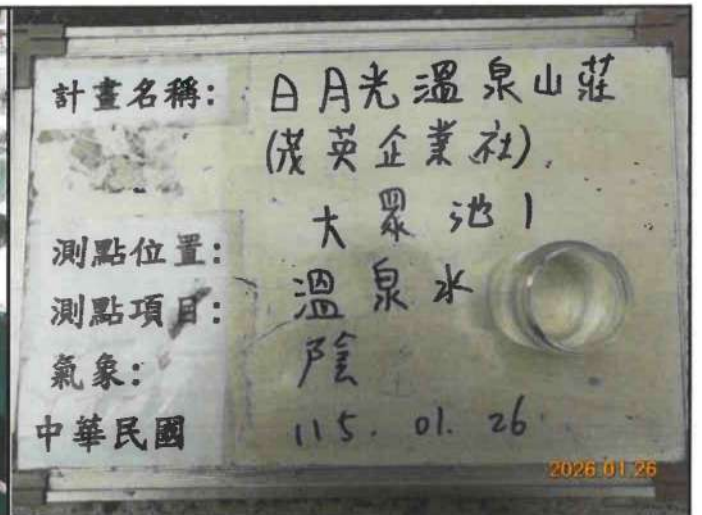 計畫名稱: 日月光溫泉山莊
(茂英企業社)
大眾池1
測點位置:
測點項目: 溫泉水
氣象: 陰
中華民國 115. 01. 26
2026 01 26